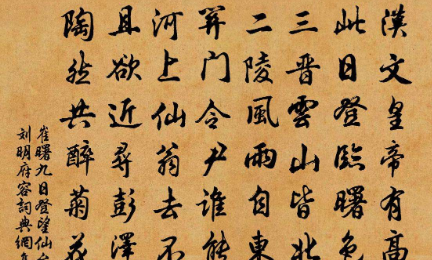 漢文皇帝有高
此日登臨曙色
三晉雲山皆北
二陵風雨自東
门令尹誰能
河上仙翁去不
且欲近尋彭澤
陶然共醉菊花
崔曙九日登望仙台
刘明府容詞典網